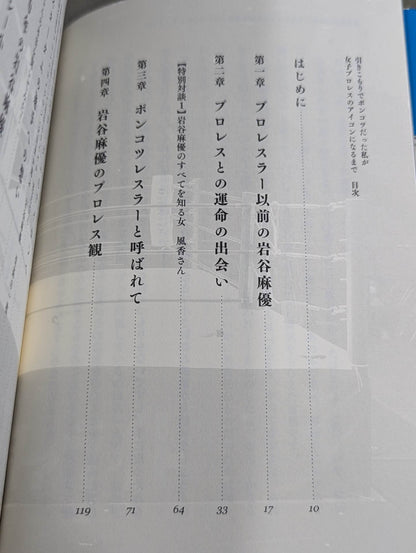 引きこもりでポンコツだった私が
女子プロレスのアイコンになるまで 目次
はじめに 10
第一章 プロレスラー以前の岩谷麻優 17
第二章 プロレスとの運命の出会い 33
【特別対談1】岩谷麻優のすべてを知る女 風香さん 64
第三章 ポンコツレスラーと呼ばれて 71
第四章 岩谷麻優のプロレス観 119